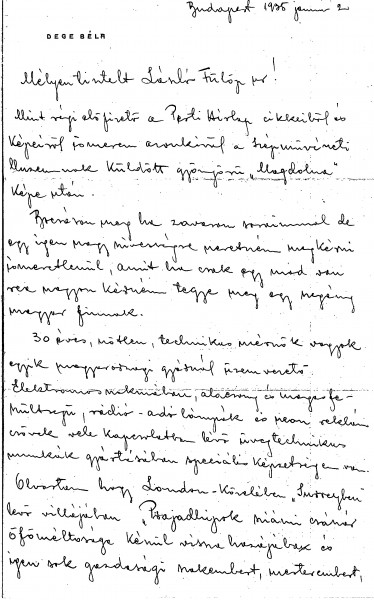 Budapest 1935 junius 2
DEGE BÉLA
Mélyen tisztelt László Fülöp ur!
Mint régi előfizető a Pesti Hirlap cikkeiből és
képeiről ismerem azonkivül a Szépmüvészeti
Muzeumnak küldött gyönyörü „Magdolna"
képe után.
Bocsásson meg ha zavarom soraimmal de
egy igen nagy szivességre szeretném megkérni
ismeretlenül, amit ha csak egy mód van
rea nagyon kérném tegye meg egy szegény
magyar fiunak.
30 éves, nőtlen, technikus mérnök vagyok
egyik magyarországi gyárnál üzemvezető
Elektromos szakmában, alacsony és magas fe-
szültségü, rádió-adó lámpák és neon reklám
csövek vele kapcsolatban lévő üvegtechnikus
munkák gyártásában speciális képzettségem van.
Olvastam hogy London-közelében „Surreyben
levő villájában Prajadhipok sziámi császár
őfőméltósága készül vissza hazájába és
igen sok gazdasági szakembert, mesterembert,